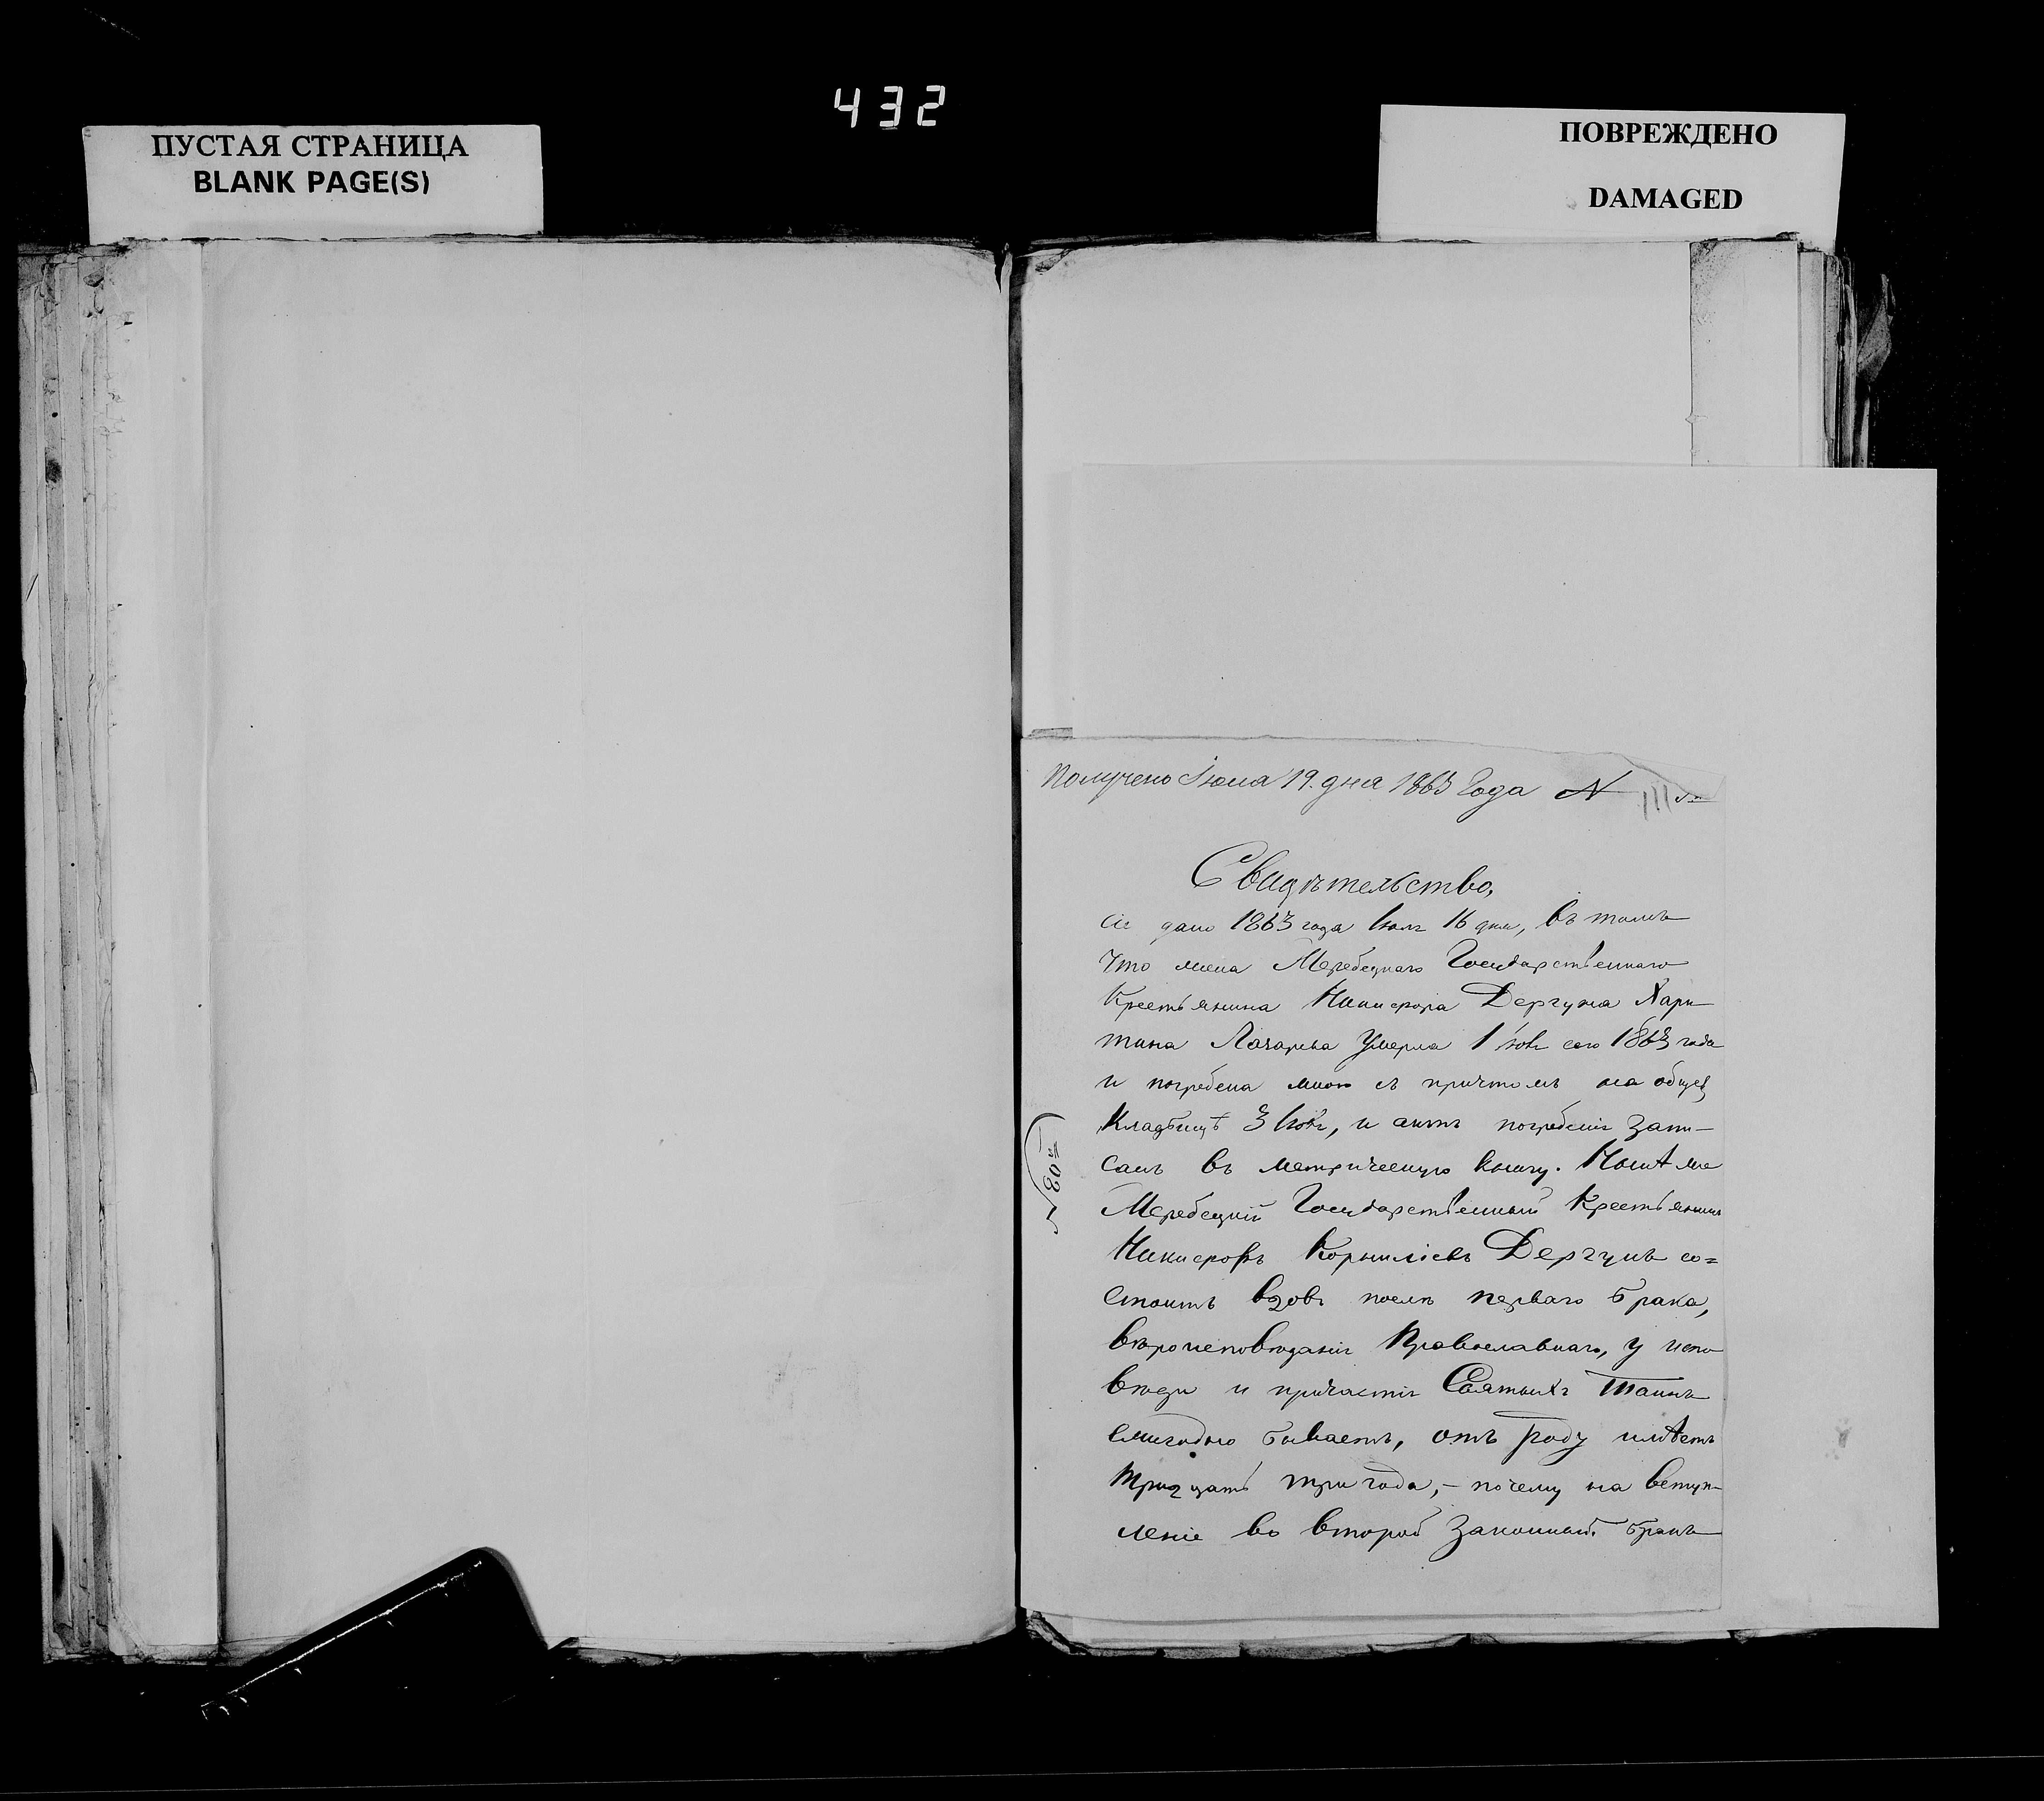 432
ПУСТАЯ СТРАНИЦА
BLANK PAGE(S)
ПОВРЕЖДЕНО
DAMAGED
Получено Іюля 19. дня 1863 Года N
Свидѣтельство,
Сіе дано 1863 года Іюля 16 дня, въ томъ
что жена Государственнаго
Крестьянина Никифора Дергуна Хари
тина Лазарева Умерла 1 сего 1863 года
и погребена мною съ причтомъ на общей
Кладбищѣ 3 и актъ погребенія запи-
санъ въ метрическую книгу.
Государственный Крестьянинъ
Никифоръ Корниліевъ Дергунъ со=
стоитъ вдовъ послѣ перваго брака,
вѣроисповѣданія Православнаго, у испо
вѣди и причастія Святыхъ Таинъ
ежегодно бываетъ, отъ роду имѣетъ
тридцать три года,- почему на вступ-
леніе во второй законный бракъ